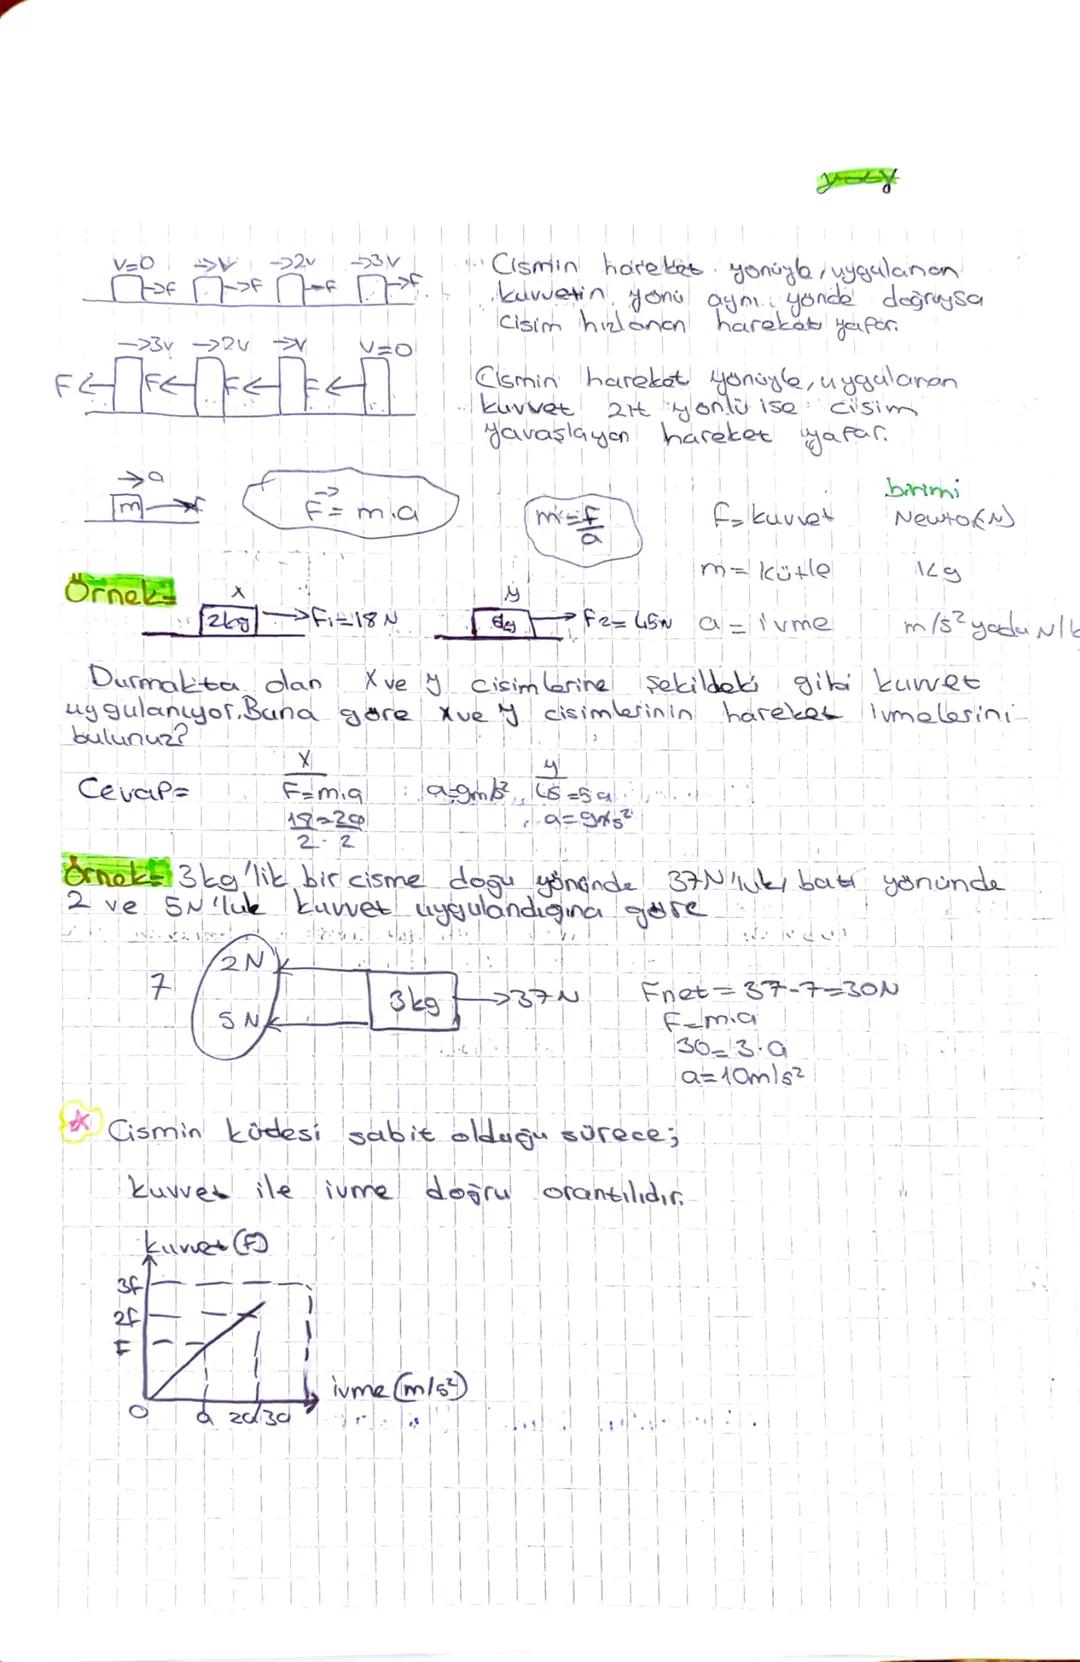 V=0 →V →2v →3v
→F →F →F →F
Cismin hareket yönüyle, uygulanan
kuvvetin yönü aynı yönde doğruysa
cisim hızlanan hareket yapar.
→3v →2v →v V=0
F← F← F← F←
Cismin hareket yönüyle, uygulanan
kuvvet zıt yönlü ise cisim
yavaşlayan hareket yapar.
→a
m →F
F = m.a
m = F/a
birimi
F= kuvvet Newton(N)
m= kütle kg
a = ivme m/s² yada N/k
Örnek=
x
2kg → F1=18 N
y
→ F2= 45N
Durmakta olan X ve y cisimlerine şekildeki gibi kuvvet
uygulanıyor. Buna göre x ve y cisimlerinin hareket ivmelerini
bulunuz?
Cevap=
X
F=m.a
18=2a
2 2
a=9m/s²
y
45=5a
a=9m/s²
Örnek= 3kg'lik bir cisme doğu yönünde 37N'luk, batı yönünde
2 ve 5N'luk kuvvet uygulandığına göre
7
2N
5N
3kg →37N
Fnet = 37-7=30N
F=m.a
30=3.a
a=10m/s²
Cismin kütlesi sabit olduğu sürece;
kuvvet ile ivme doğru orantılıdır.
kuvvet (F)
3f
2f
F
ivme (m/s²)
0 a 2a 3a